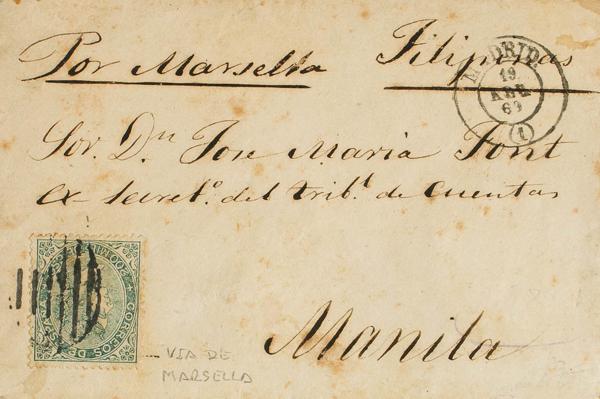 Por Marsella Filipinas
MADRID
19
ABR
69
(1)
Sor. Dn Jose Maria Font
ex-Secreto. del tribl. de Cuentas
CORREOS
Manila
VIA DE
MARSELLA